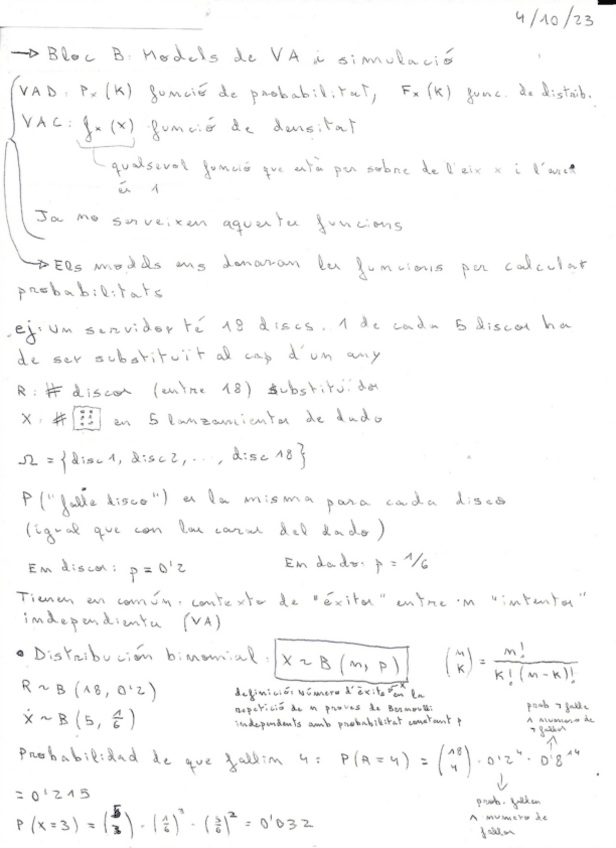 4/10/23
→ Bloc B: Models de VA i simulació
VAD: Px(K) funció de probabilitat, Fx(K) func. de distrib.
VAC: fx(x) funció de densitat
qualsevol funció que està per sobre de l'eix x i l'area
és 1
Ja no serveixen aquestes funcions
→ Els models ens donaran les funcions per calcular
probabilitats
ej: Un servidor té 18 discs. 1 de cada 5 discos ha
de ser substituït al cap d'un any
R: # discos (entre 18) substituïdos
X: # ⚅ en 5 lanzamientos de dado
Ω = {disc 1, disc 2, ..., disc 18}
P("falle disco") es la misma para cada disco
(igual que con las caras del dado)
En discos: p = 0'2 En dado: p = 1/6
Tienen en común: contexto de "éxitos" entre n "intentos"
independientes (VA)
• Distribución binomial: X ~ B(n, p) (n K) = n! / K!(n-K)!
R ~ B(18, 0'2)
X ~ B(5, 1/6)
definició: Número d'èxits "x" en la
repetició de n proves de Bernoulli
independents amb probabilitat constant p
prob ¬ falle
^ numero de
¬ fallos
Probabilidad de que fallin 4: P(R=4) = (18 4) · 0'2^4 · 0'8^14
= 0'215
prob. fallen
^ numero de
fallos
P(X=3) = (5 3) · (1/6)^3 · (5/6)^2 = 0'032